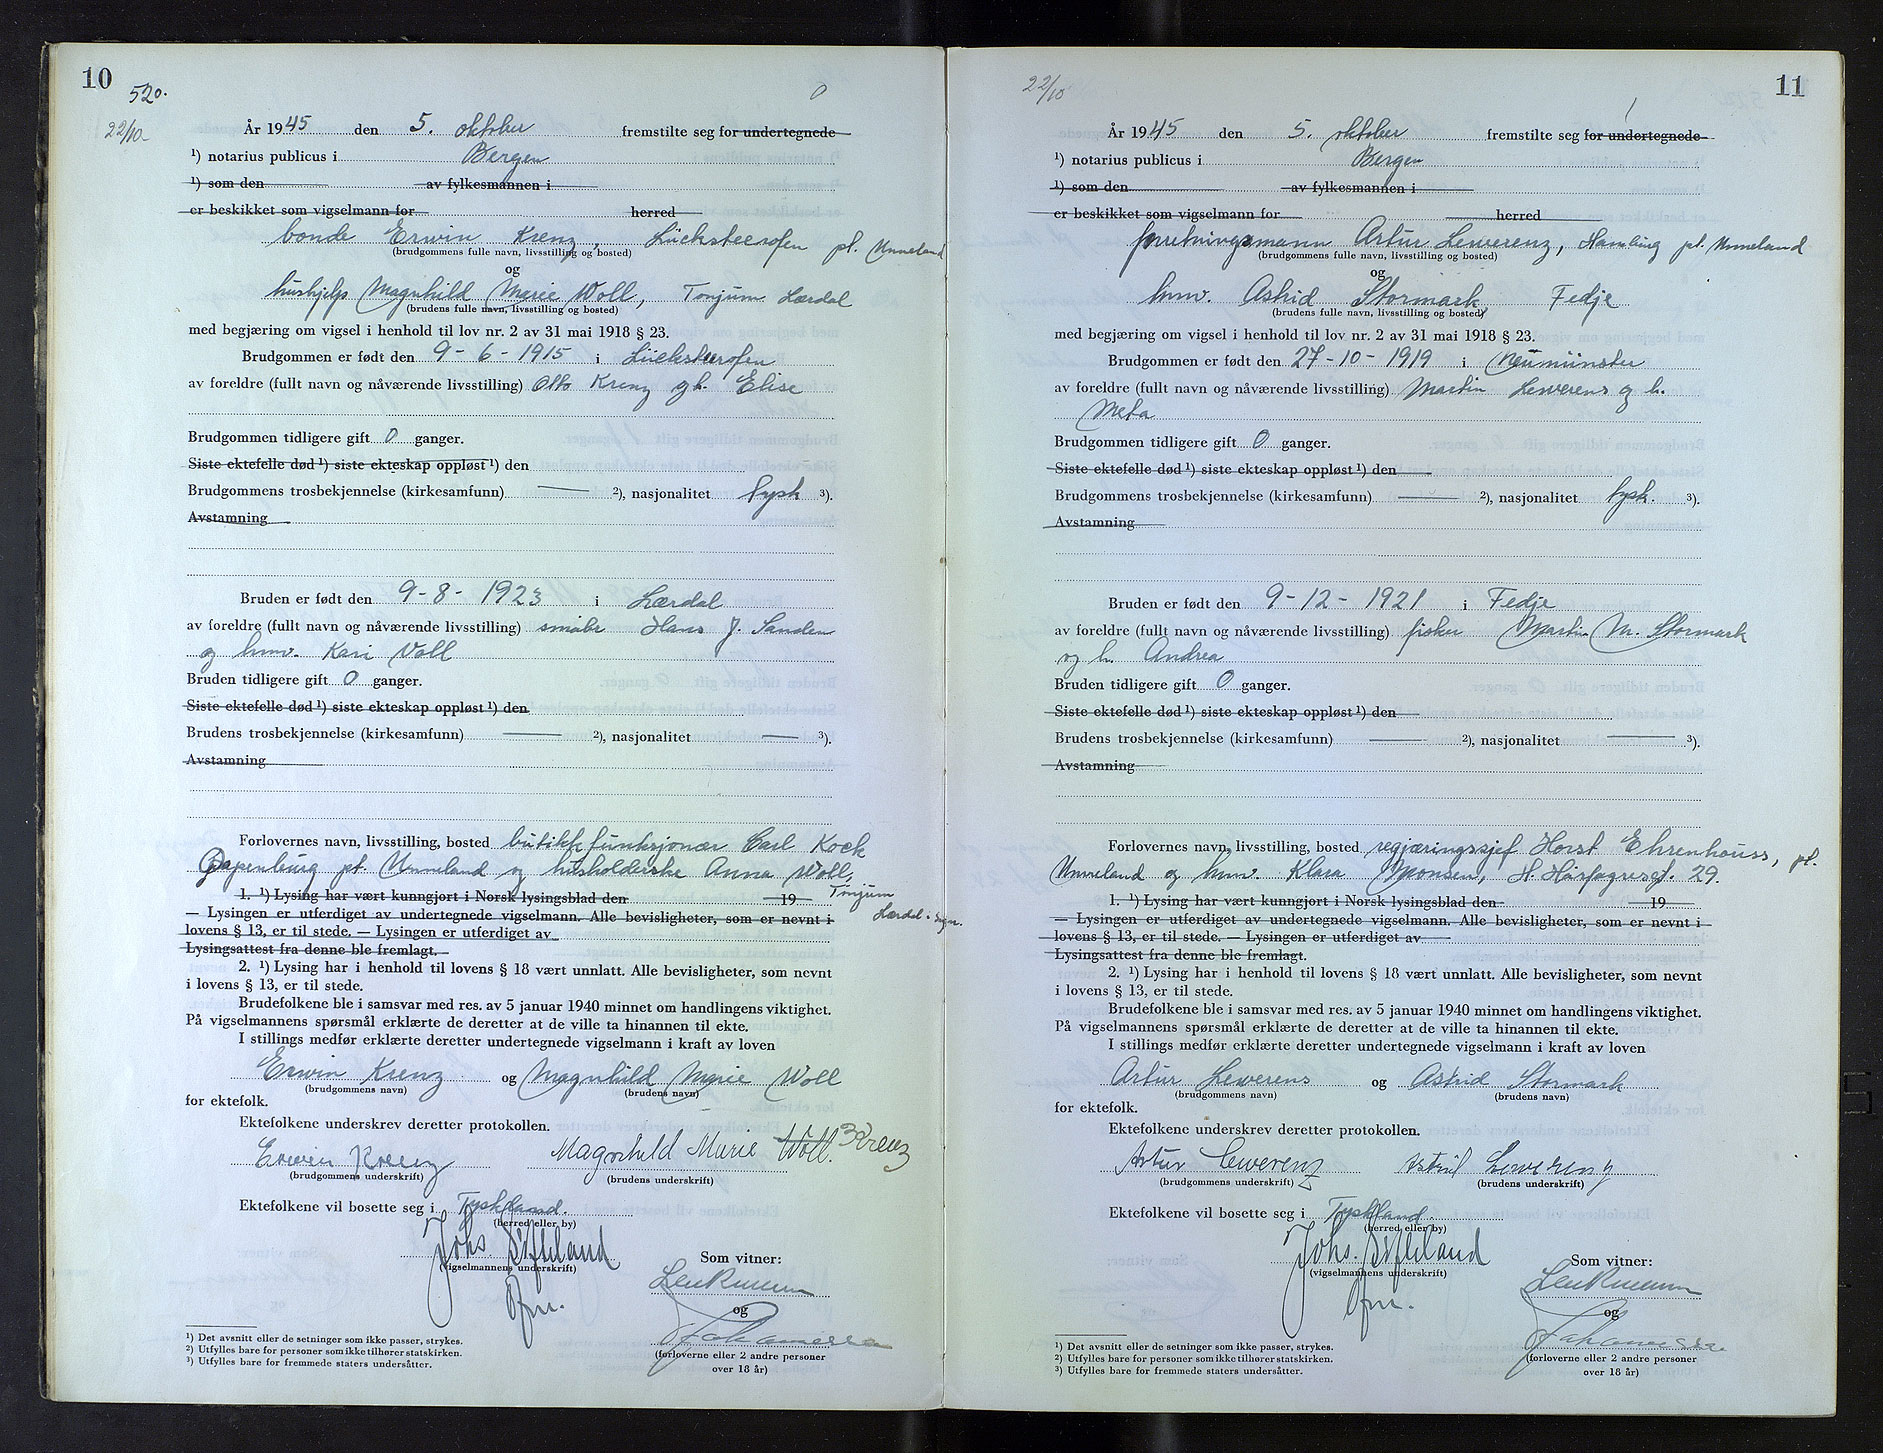 10
520.
22/10
År 1945 den 5. oktober fremstilte seg for undertegnede
¹) notarius publicus i Bergen
¹) som den av fylkesmannen i
er beskikket som vigselmann for herred
bonde Erwin Krenz, pt. Unneland
(brudgommens fulle navn, livsstilling og bosted)
og
hushjelp Magnhild Marie Woll, Tønjum Lærdal
(brudens fulle navn, livsstilling og bosted)
med begjæring om vigsel i henhold til lov nr. 2 av 31 mai 1918 § 23.
Brudgommen er født den 9-6-1915 i
av foreldre (fullt navn og nåværende livsstilling) Otto Krenz og h. Elise
Brudgommen tidligere gift 0 ganger.
Siste ektefelle død ¹) siste ekteskap oppløst ¹) den
Brudgommens trosbekjennelse (kirkesamfunn) ²), nasjonalitet tysk ³).
Avstamning
Bruden er født den 9-8-1923 i Lærdal
av foreldre (fullt navn og nåværende livsstilling) småbr Hans J. Sanden
og hmv. Kari Voll
Bruden tidligere gift 0 ganger.
Siste ektefelle død ¹) siste ekteskap oppløst ¹) den
Brudens trosbekjennelse (kirkesamfunn) ²), nasjonalitet ³).
Avstamning
Forlovernes navn, livsstilling, bosted butikkfunksjonær Carl Kock
Papenburg pt. Unneland og husholderske Anna Woll,
1. ¹) Lysing har vært kunngjort i Norsk lysingsblad den 19 Tønjum
— Lysingen er utferdiget av undertegnede vigselmann. Alle bevisligheter, som er nevnt i Lærdal i Sogn.
lovens § 13, er til stede. — Lysingen er utferdiget av
Lysingsattest fra denne ble fremlagt.
2. ¹) Lysing har i henhold til lovens § 18 vært unnlatt. Alle bevisligheter, som nevnt
i lovens § 13, er til stede.
Brudefolkene ble i samsvar med res. av 5 januar 1940 minnet om handlingens viktighet.
På vigselmannens spørsmål erklærte de deretter at de ville ta hinannen til ekte.
I stillings medfør erklærte deretter undertegnede vigselmann i kraft av loven
Erwin Krenz og Magnhild Marie Woll
(brudgommens navn) (brudens navn)
for ektefolk.
Ektefolkene underskrev deretter protokollen.
Erwin Krenz Magnhild Marie Woll. Krenz
(brudgommens underskrift) (brudens underskrift)
Ektefolkene vil bosette seg i Tyskland.
(herred eller by)
Johs.
(vigselmannens underskrift)
Som vitner:
og
¹) Det avsnitt eller de setninger som ikke passer, strykes.
²) Utfylles bare for personer som ikke tilhører statskirken.
³) Utfylles bare for fremmede staters undersåtter.
(forloverne eller 2 andre personer
over 18 år)
11
22/10
År 1945 den 5. oktober fremstilte seg for undertegnede
¹) notarius publicus i Bergen
¹) som den av fylkesmannen i
er beskikket som vigselmann for herred
forretningsmann Artur Lewerenz, Hamburg pt. Unneland
(brudgommens fulle navn, livsstilling og bosted)
og
hmv. Astrid Stormark, Fedje
(brudens fulle navn, livsstilling og bosted)
med begjæring om vigsel i henhold til lov nr. 2 av 31 mai 1918 § 23.
Brudgommen er født den 27-10-1919 i Neumünster
av foreldre (fullt navn og nåværende livsstilling) Martin Lewerens og h.
Meta
Brudgommen tidligere gift 0 ganger.
Siste ektefelle død ¹) siste ekteskap oppløst ¹) den
Brudgommens trosbekjennelse (kirkesamfunn) ²), nasjonalitet tysk. ³).
Avstamning
Bruden er født den 9-12-1921 i Fedje
av foreldre (fullt navn og nåværende livsstilling) fisker Martin M. Stormark
og h. Andrea
Bruden tidligere gift 0 ganger.
Siste ektefelle død ¹) siste ekteskap oppløst ¹) den
Brudens trosbekjennelse (kirkesamfunn) ²), nasjonalitet ³).
Avstamning
Forlovernes navn, livsstilling, bosted regjæringssjef Horst Ehrenhouss, pt.
Unneland og hmv. Klara Monsen, H. Hårfagresgt. 29.
1. ¹) Lysing har vært kunngjort i Norsk lysingsblad den 19
— Lysingen er utferdiget av undertegnede vigselmann. Alle bevisligheter, som er nevnt i
lovens § 13, er til stede. — Lysingen er utferdiget av
Lysingsattest fra denne ble fremlagt.
2. ¹) Lysing har i henhold til lovens § 18 vært unnlatt. Alle bevisligheter, som nevnt
i lovens § 13, er til stede.
Brudefolkene ble i samsvar med res. av 5 januar 1940 minnet om handlingens viktighet.
På vigselmannens spørsmål erklærte de deretter at de ville ta hinannen til ekte.
I stillings medfør erklærte deretter undertegnede vigselmann i kraft av loven
Artur Lewerens og Astrid Stormark
(brudgommens navn) (brudens navn)
for ektefolk.
Ektefolkene underskrev deretter protokollen.
Artur Lewerenz Astrid Lewerenz
(brudgommens underskrift) (brudens underskrift)
Ektefolkene vil bosette seg i Tyskland.
(herred eller by)
Johs.
(vigselmannens underskrift)
Som vitner:
og
¹) Det avsnitt eller de setninger som ikke passer, strykes.
²) Utfylles bare for personer som ikke tilhører statskirken.
³) Utfylles bare for fremmede staters undersåtter.
(forloverne eller 2 andre personer
over 18 år)